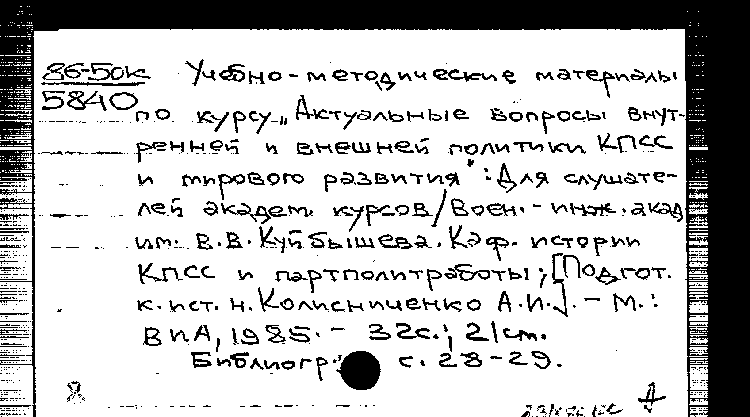 86-50к Учебно-методические материалы
5840 по курсу „Актуальные вопросы внут-
ренней и внешней политики КПСС
и мирового развития": Для слушате-
лей академ. курсов/Воен.-инж. акад
им. В.В. Куйбышева. Каф. истории
КПСС и партполитработы; [Подгот.
к. ист. н. Колисниченко А.И.]. - М.:
ВИА, 1985. - 32с.; 21см.
Библиогр.: с. 28-29.
Я